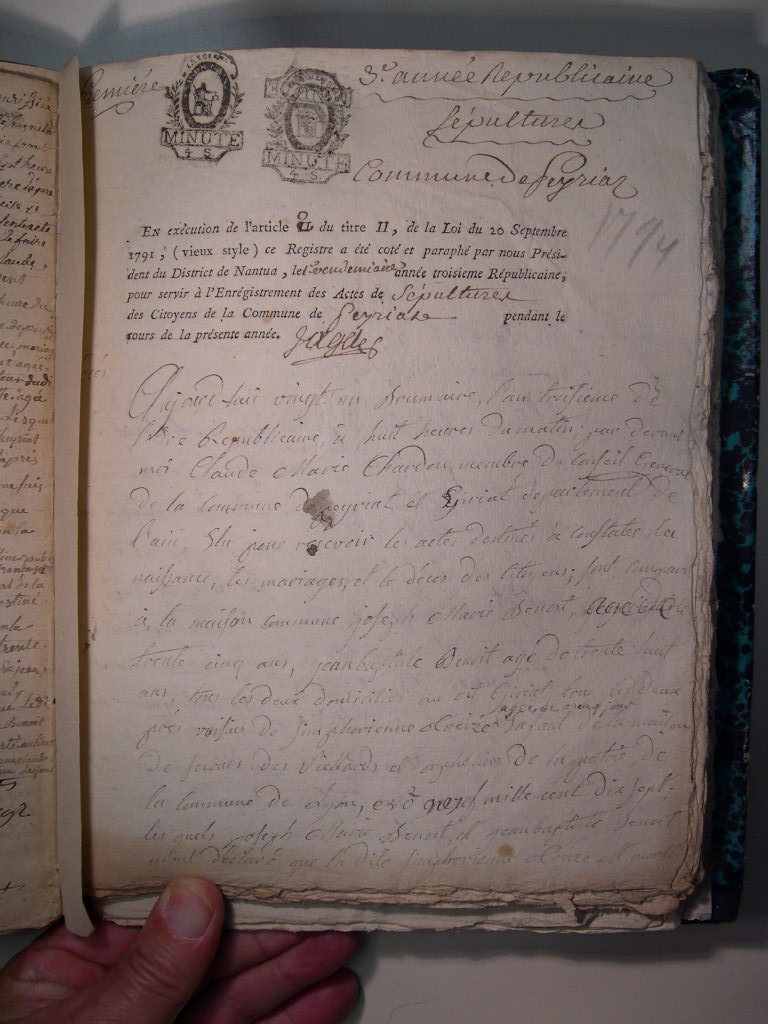 Première
MINUTE
4 S.
MINUTE
4 S.
3e. année Republicaine
Sépultures
Commune de Peyriat
1794
EN exécution de l'article 2 du titre II, de la Loi du 20 Septembre
1791, (vieux style) ce Registre a été coté et paraphé par nous Prési-
dent du District de Nantua, le 1er vendemiaire année troisieme Républicaine,
pour servir à l'Enrégistrement des Actes de Sépultures
des Citoyens de la Commune de Peyriat pendant le
cours de la présente année.
Aujourd'hui vingt un Brumaire, l'an troisieme de
l'Ere Republicaine, à huit heures du matin; par devant
moi Claude Marie Chardon, membre du Conseil General
de la commune de peyriat et departement de
l'ain, Elu pour recevoir les actes destinés à constater les
naissance, les mariages, et le déces des Citoyens; sont comparu
à la maison commune joseph Marie Benoit, agé de
trente cinq ans, jean baptiste Benoit agé de trente huit
ans, tous les deux domiciliés au dit les deux
voisins de simphorienne enfant de la maison
de secours des viellards et orphelins de la de
la Commune de Lyon, n° neuf mille cent dix sept.
les quels joseph Marie Benoit, et jean baptiste Benoit
m'ont déclaré que la dite simphorienne est morte